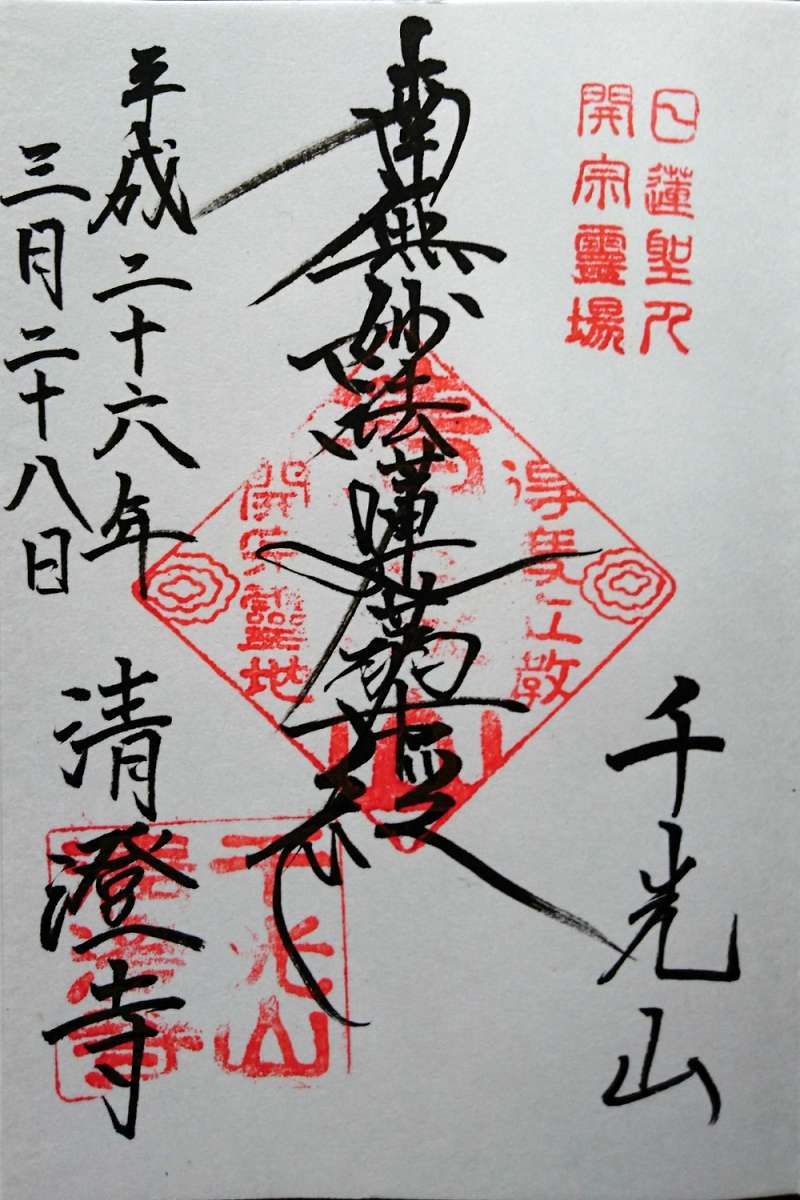 日蓮聖人
開宗靈場
千光山
南無妙法蓮華経
得度立教
開宗靈地
平成二十六年
三月二十八日
清澄寺
千光山
清澄寺